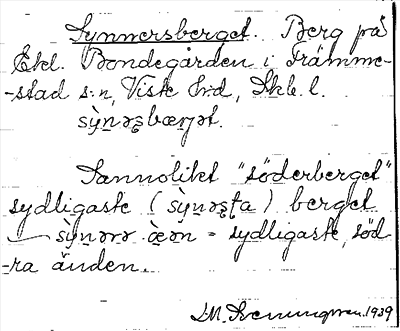 Synnersberget. Berg på
Ekl. Bondegården i Främme-
-stad s:n, Viste h:d, Skb. l.
sỳn̲ər̲s̲bærjət.
Sannolikt "söderberget"
sydligaste (sỳn̲əs̲ta) berget
sỳn̲ərə æ̀ən = sydligaste, söd-
-ra änden.
1939